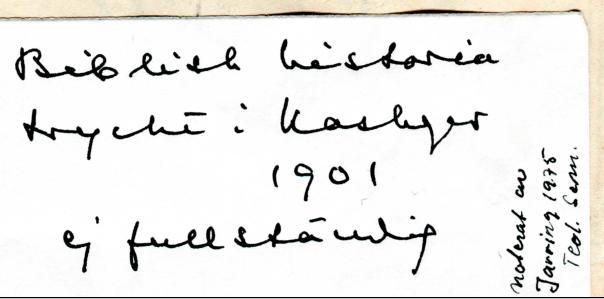 Biblisk historia
tryckt i Kashgar
1901
ej fullständig
noterat av
Jarring 1975
Teol. Sem.